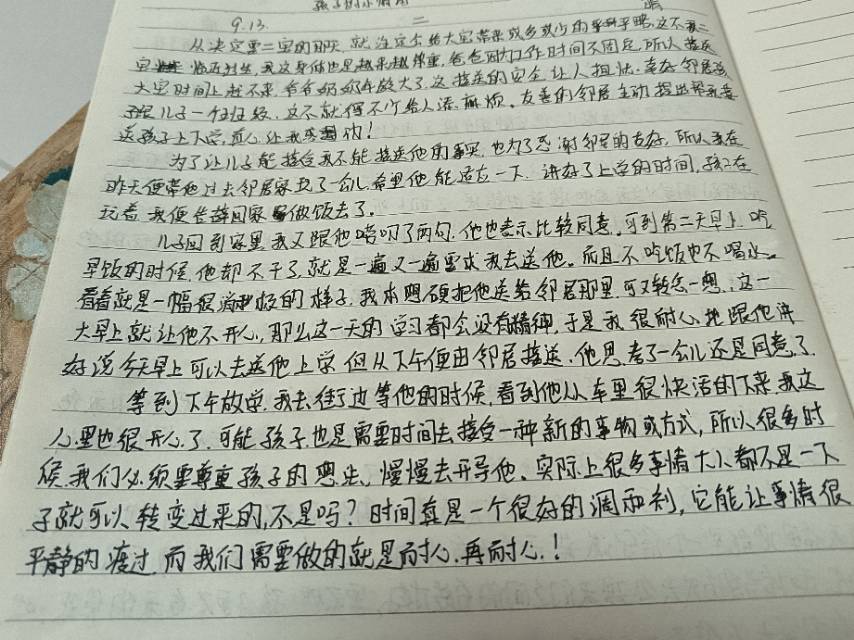 孩子的小情绪
9.13. 二 晴
从决定要二宝的那天,就注定会给大宝带来或多或少的不平暖,这不我二
宝临近到坐,我这身体也是越来越笨重,爸爸因为工作时间不固定,所以接送
大宝时间上赶不来,爷爷奶奶年龄大了,这接送的安全让人担忧。幸好邻居孩
子跟儿子一个班级,这不就得不个给人添麻烦。友善的邻居主动提出帮我接
送孩子上下学,真心让我感动!
为了让儿子能接受我不能接送他的事实,也为了感谢邻居的友好,所以我在
昨天便带他过去邻居家玩了一会儿,希望他能适应一下,讲好了上学的时间,孩子在
玩着,我便告辞回家做饭去了。
儿子回到家里,我又跟他唠叨了两句,他也表示比较同意。可到第二天早上,吃
早饭的时候,他却不干了,就是一遍又一遍要求我去送他。而且不吃饭也不喝水。
看着就是一幅很消极的样子,我本想硬把他送给邻居那里,可又转念一想,这一
大早上就让他不开心,那么这一天的学习都会没有精神,于是我很耐心地跟他讲
好说今天早上可以去送他上学,但从下午便由邻居接送,他思考了一会儿还是同意了。
等到下午放学,我去街边等他的时候,看到他从车里很快活的下来,我这
心里也很开心了,可能孩子也是需要时间去接受一种新的事物或方式,所以很多时
候,我们必须要尊重孩子的想法,慢慢去开导他。实际上很多事情大人都不是一下
子就可以转变过来的,不是吗?时间真是一个很好的调和剂,它能让事情很
平静的渡过,而我们需要做的就是耐心,再耐心!